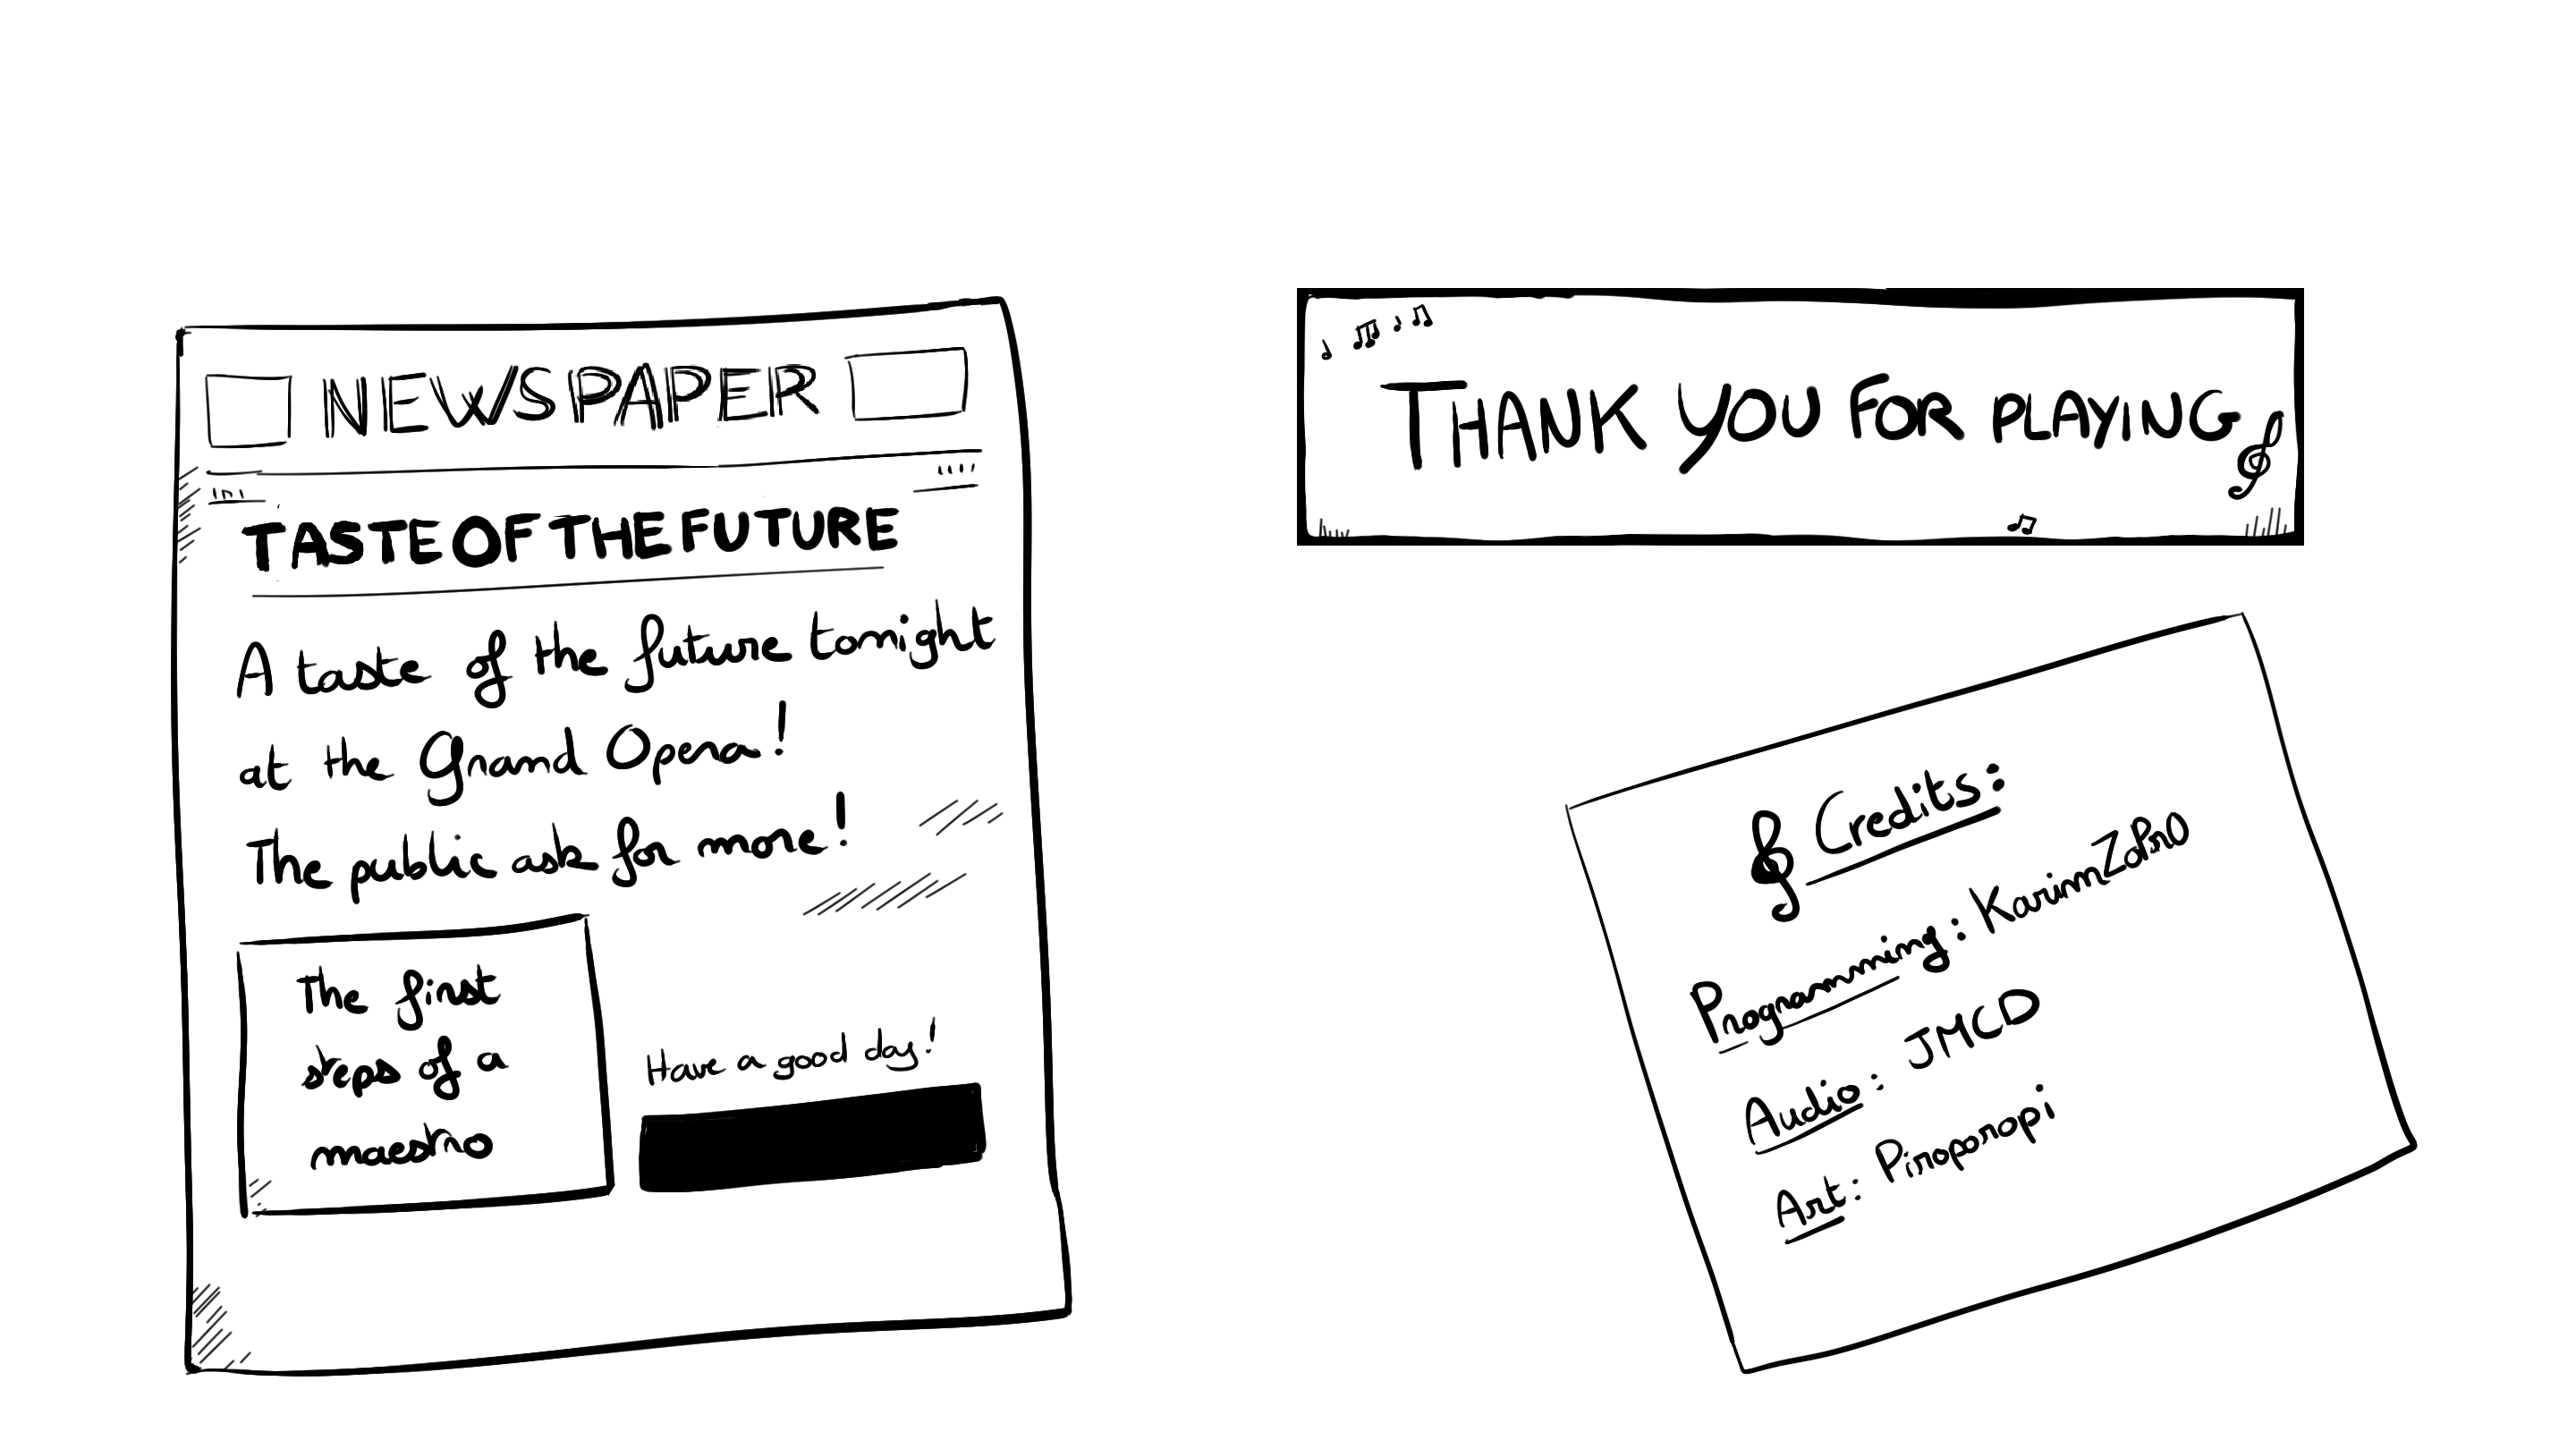 NEWSPAPER
TASTE OF THE FUTURE
A taste of the future tonight
at the Grand Opera!
The public ask for more!
The first
steps of a
maestro
Have a good day!
THANK YOU FOR PLAYING
Credits:
Programming: KarimZaPro
Audio: JMCD
Art: Piroporopi